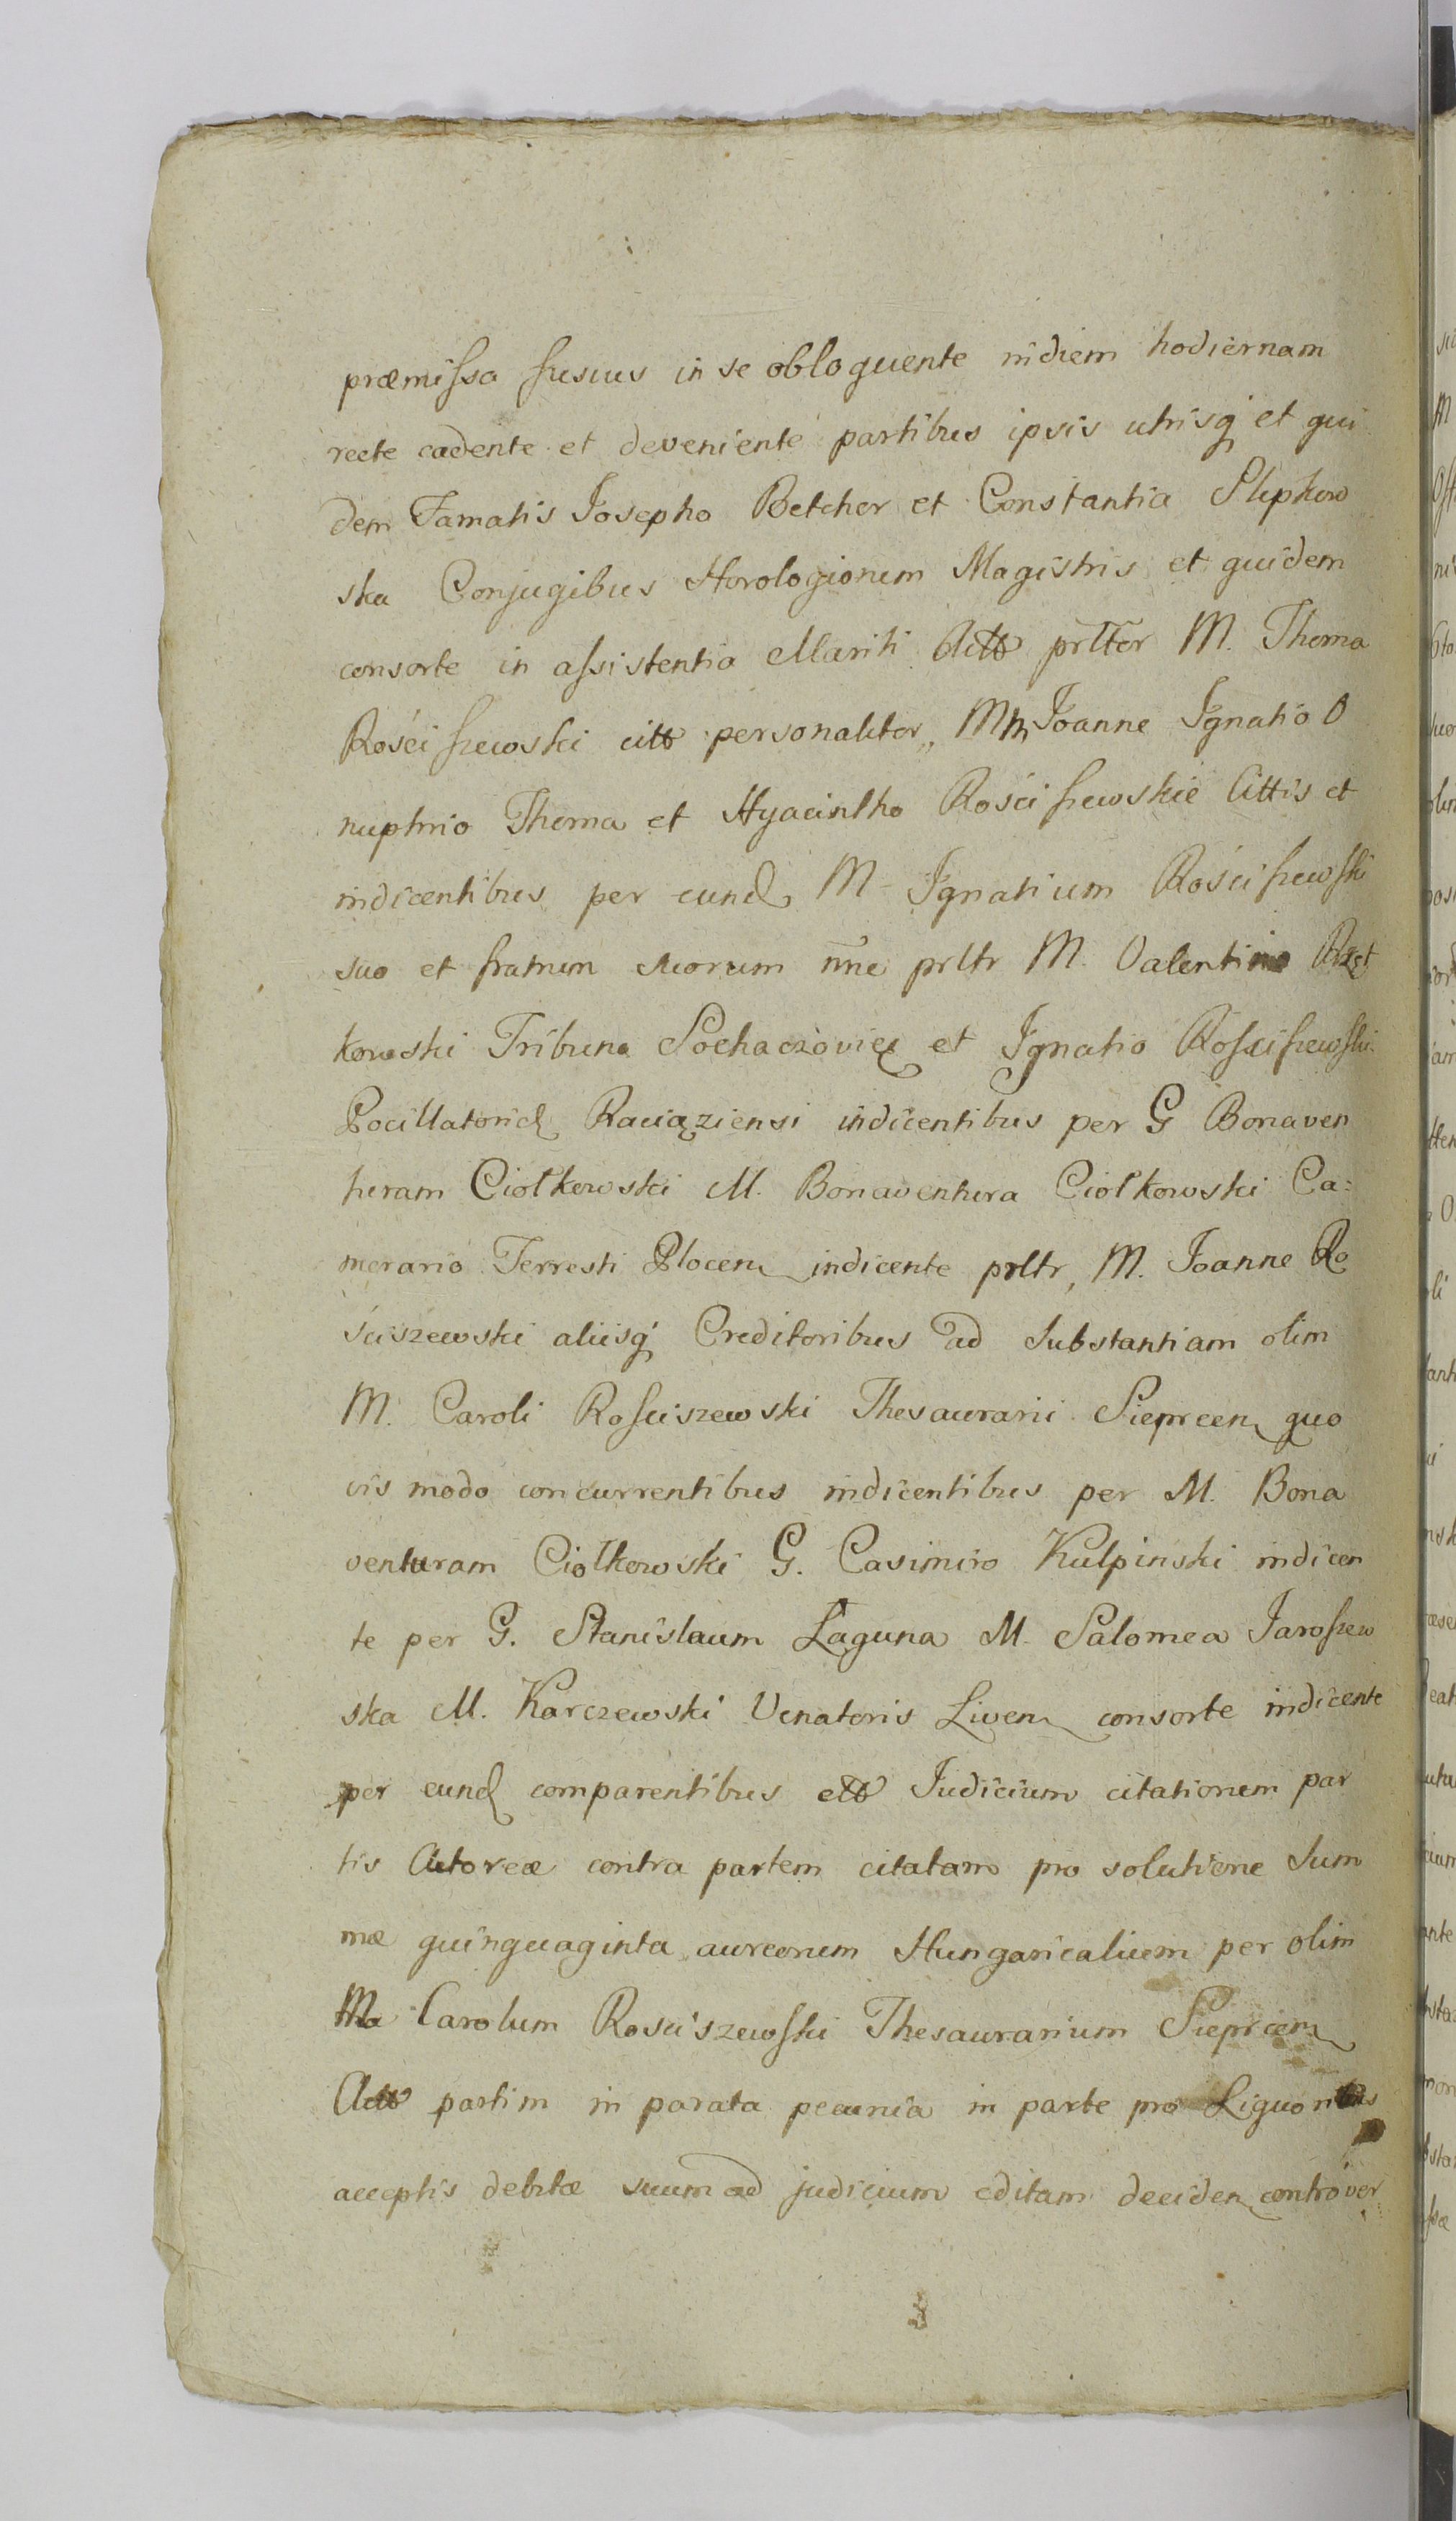 præmissa fusius in se obloquente in diem hodiernam
recte cadente et deveniente partibus ipsis utrisq et qui
dem Famatis Josepho Betcher et Constantia Slepkow
ska Conjugibus Horologiorum Magistris et quidem
consorte in assistentia Mariti Actt prltter M. Thoma
Rościszewski citt personaliter, Mm Joanne Ignatio O
nuphrio Thoma et Hyacintho Rościszewskie Cittis et
indicentibus per eund M Ignatium Rościszewski
suo et fratrum suorum nne prltr M. Valentino Rzęt
kowski Tribuno Sochaczovien et Ignatio Rosciszewski
Pocillatorid Raciąziensi indicentibus per G Bonaven
turam Ciołkowski M. Bonaventura Ciołkowski Ca:
merario Terresti Plocen indicente prltr, M. Joanne Ro
ściszewski aliisq Creditoribus ad Substantiam olim
M. Caroli Rosciszewski Thesaurarii Sieprcen quo
vis modo concurrentibus indicentibus per M. Bona
venturam Ciołkowski G. Casimiro Kulpinski indicen
te per G. Stanislaum Łaguna M. Salomea Jaroszew
ska M. Karczewski Venatoris Liven consorte indicente
per eund comparentibus ett Judicium citationem par
tis Actoreæ contra partem citatam pro solutione Sum
mæ quinquaginta aureorum Hungaricalium per olim
M Carolum Rosciszewski Thesaurarium Sieprcen
Actt partim in parata pecunia in parte pro Liquoribus
acceptis debitæ suum ad judicium editam deciden controver